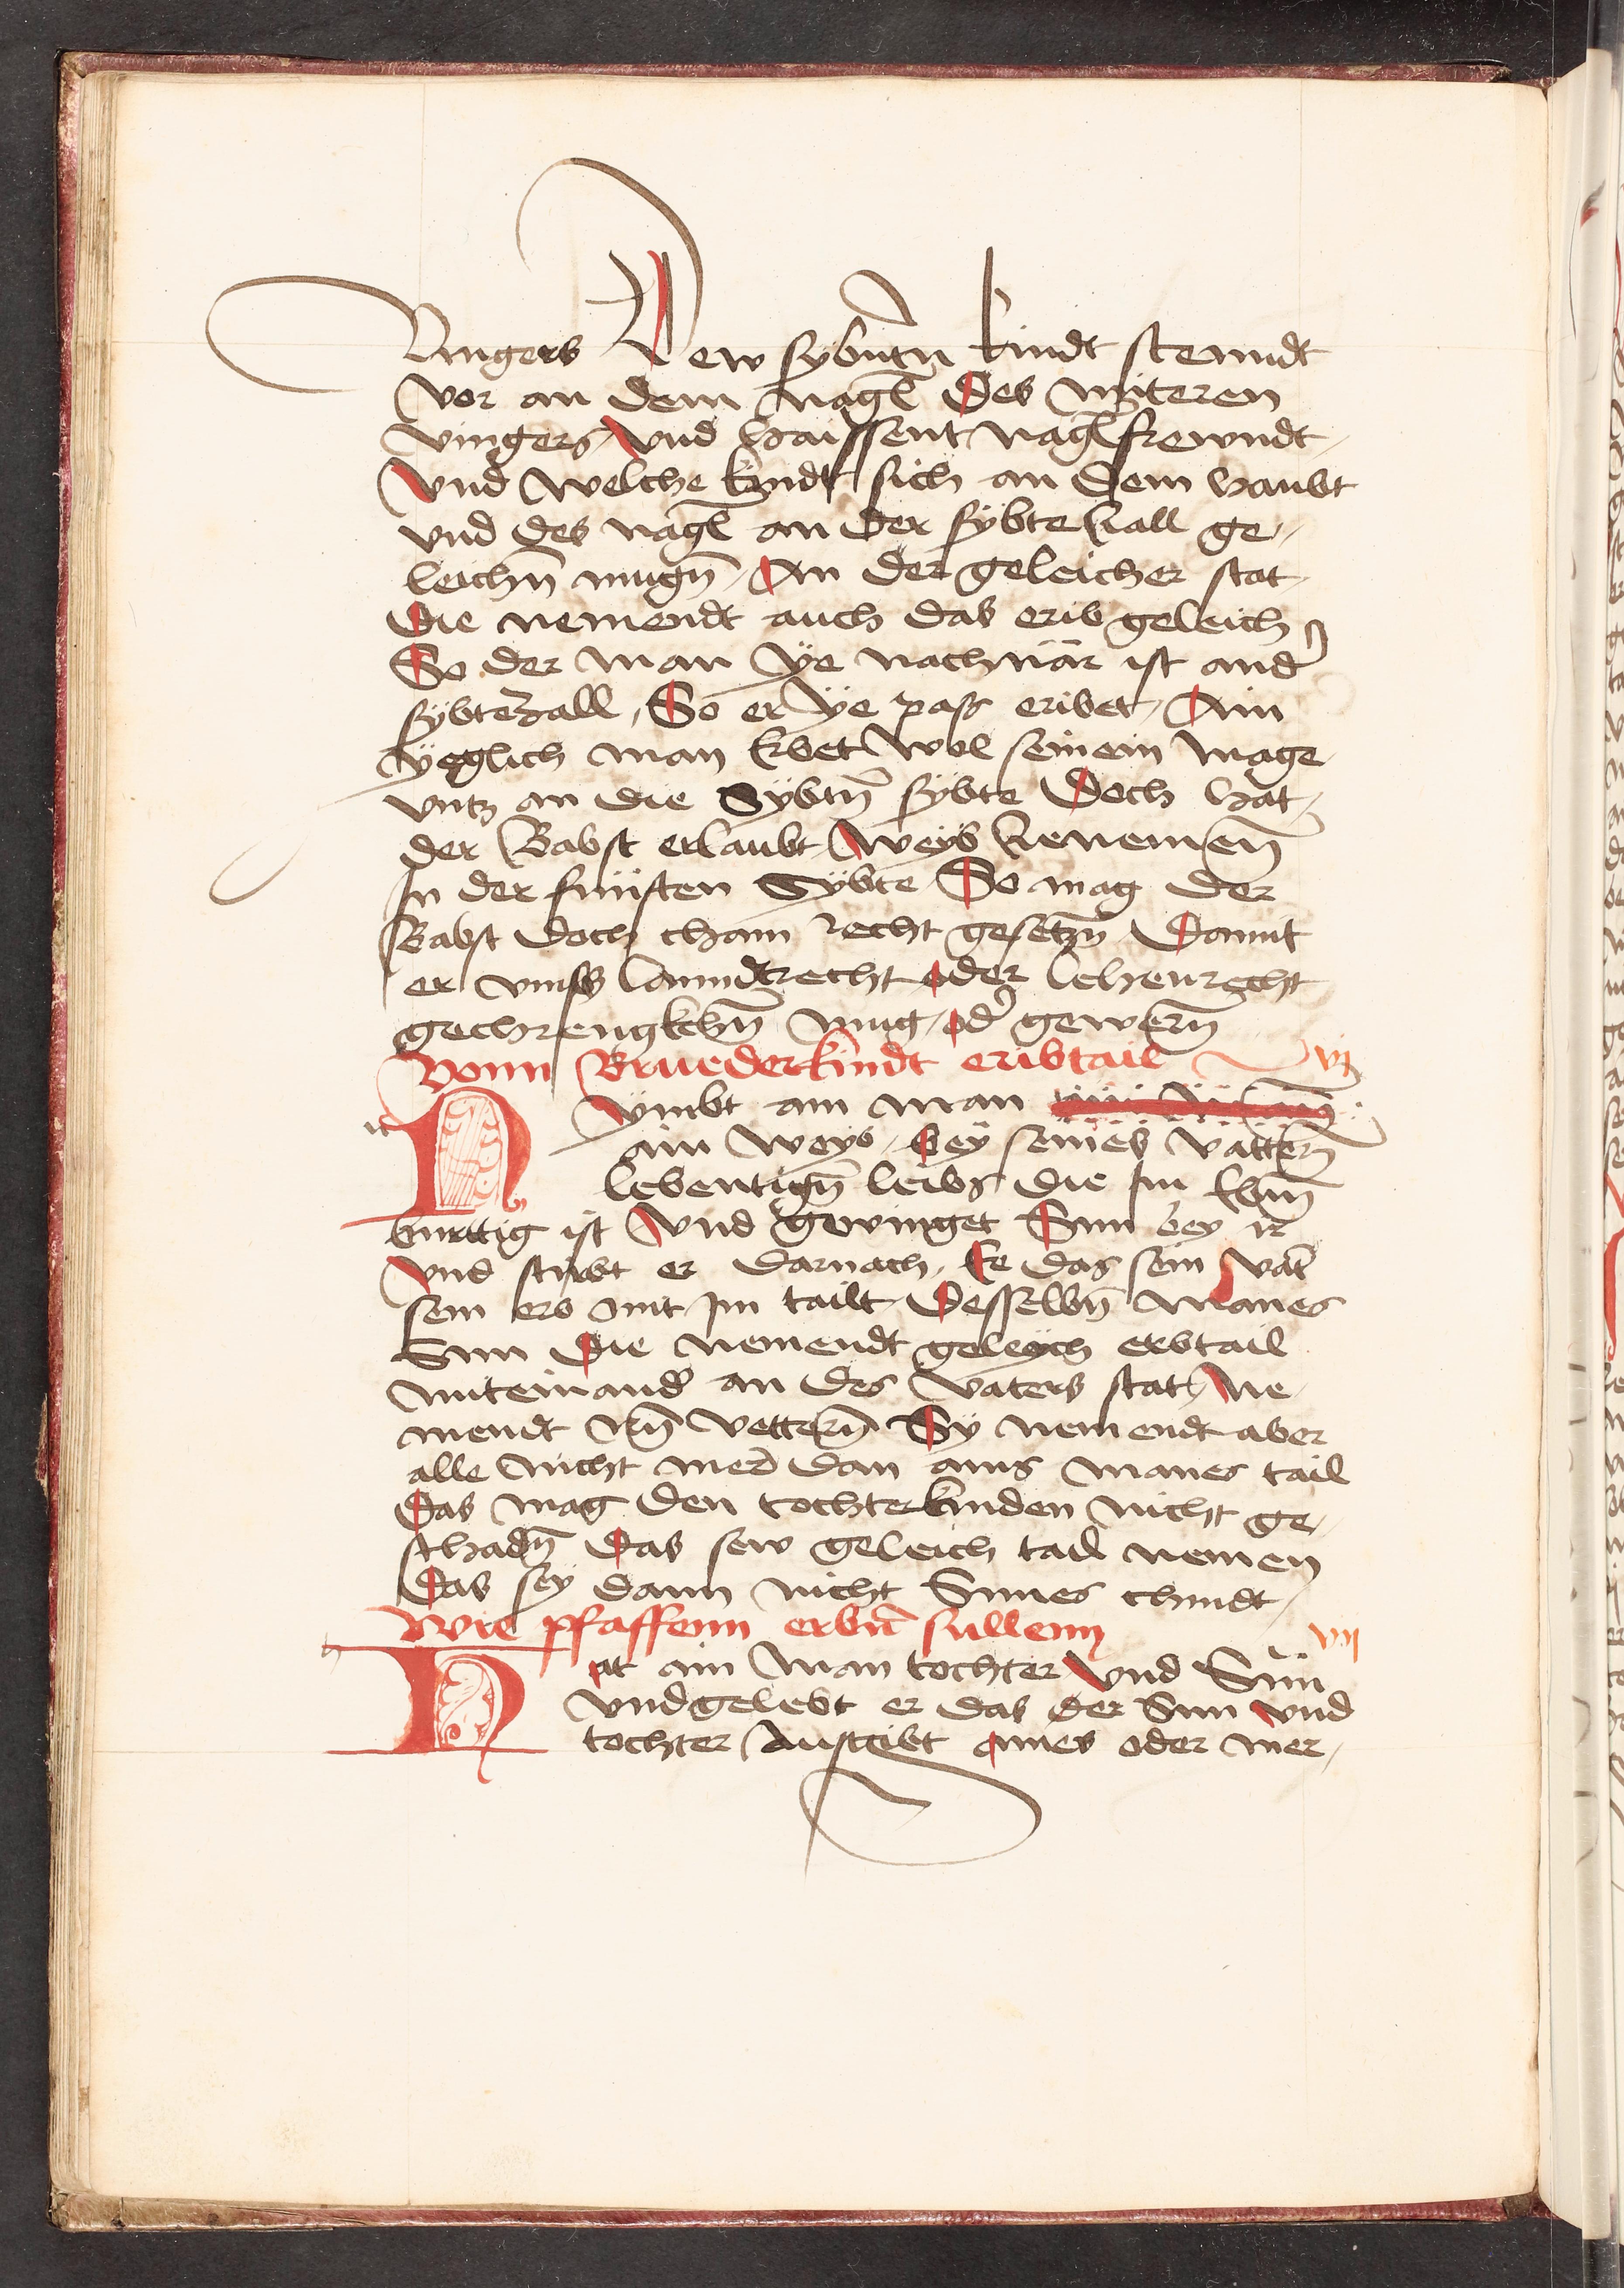 Vingers Dew sybntn̄ kindt stenndt
vor an dem nagl̄ Des mitteren
vingers / Vnd haissent naglfrewndt /
Vnd welche kyndt sich an dem haubt
vnd des nagl̄ an der sybtzall ge⸗
leichn̄ mugn̄ / An der geleicher stat /
Die nemendt auch das erib geleich
So der man ÿe nachnär ist and̄
sybtezall / So er ÿe pass eribet / Ain
ÿeglich man erbet wol seinem mage /
vntz an die Sybtn̄ sybte Doch hat /
der Babst erlaubt / weyb ze nemen̄
Jn der fünften Sybte / So mag Der
Babst doch chain recht gesetzn̄ Damit
er vnnss lanndtrecht oder lehenrecht
gechrengkchn̄ mug / od̄ gewern̄
Vonn Bruederkindt eribtail vj
n
Nymbt ain man
ain weyb / bey seines vattern̄
lebentign̄ leibs die Jm ebn̄
burttig ist Vnd gewinget Sun bey ir
Vnd stirbt er darnach / Ee das sein vat̄
sein erb mit Jm tailt / Desselbn̄ Manes
Sun Die nemendt geleych erbtail
miteinand̄ an des vaters stat / Ne⸗
mendt Irn̄ vettern̄ Sy nemendt aber
alle nicht mer dan ains manes tail
Das mag den tochterkinden nicht ge⸗
schadn̄ Das sew geleich tail nemen
Das sey dann nicht Sunes chindt /
Wie pfaffenn erbn̄ sullenn vij
h
Hat ain man tochter Vnd Sun
vnd gelebt er das der Sun Vnd
tochter Ausgibt aines oder mer /